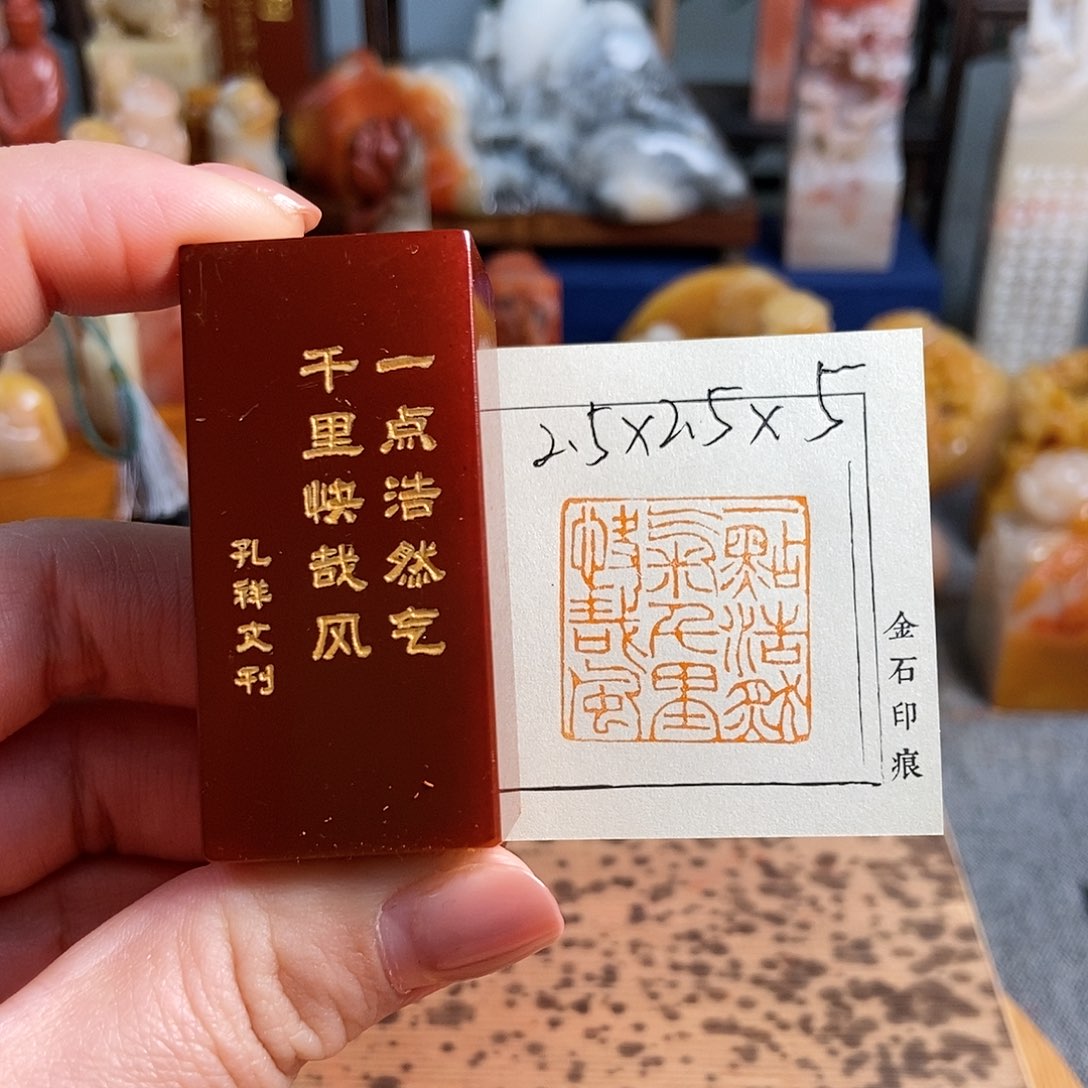 一点浩然气
千里快哉风
孔祥文刊
2.5x2.5x5
一點浩然
氣千里
快哉風
金石印痕